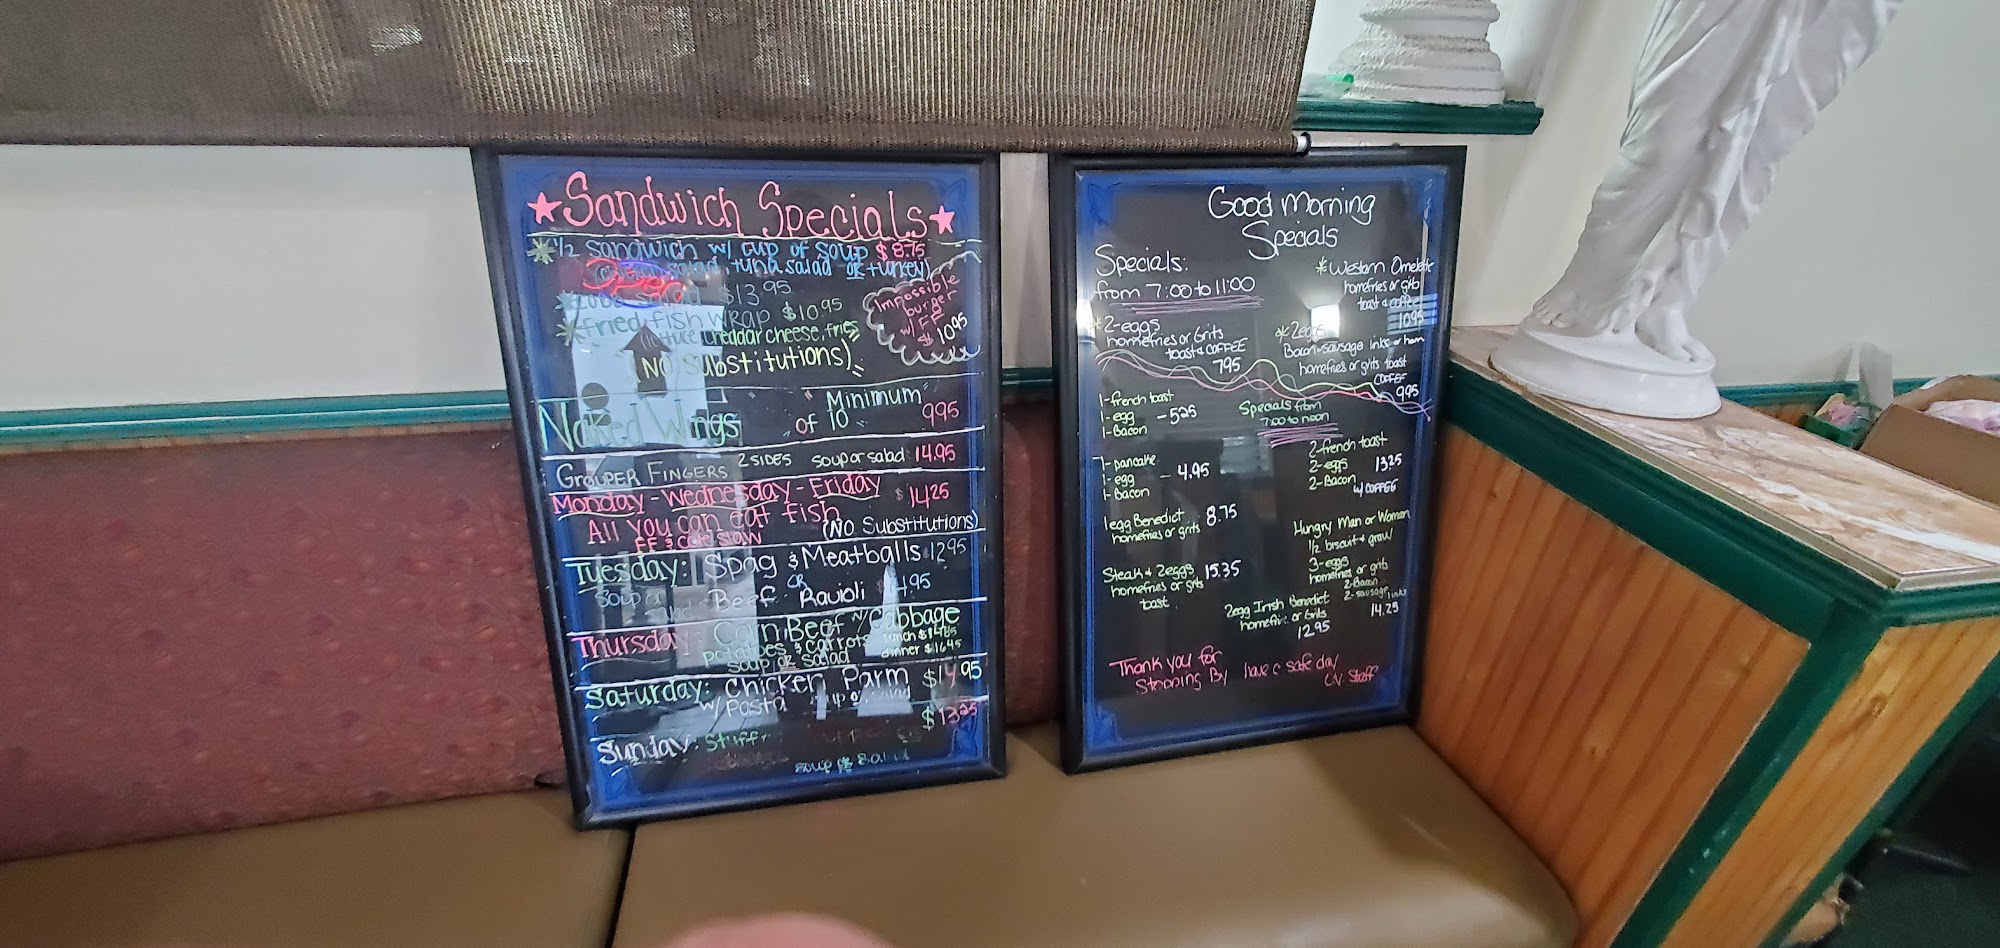 Sandwich Specials
1/2 Sandwich w/ cup of soup $8.75
salad, tuna salad or turkey)
Open
salad $13.95
fried fish wrap $10.95
(lettuce cheddar cheese, fries
NO Substitutions)
Impossible
burger
w/ FF
$10.95
Naked Wings
Minimum
of 10
9.95
Grouper Fingers 2 SIDES soup or salad 14.95
Monday - Wednesday - Friday $14.25
All you can eat fish
FF & cole slaw
(NO Substitutions)
Tuesday: Spag & Meatballs 12.95
OR
soup or
salad
Beef Ravioli
Thursday: Corn Beef w/ Cabbage
potatoes & carrots
soup or salad
lunch
dinner $16.45
Saturday: Chicken Parm $14.95
w/ Pasta
$13.25
Sunday:
soup
Good Morning
Specials
Specials:
from 7:00 to 11:00
2-eggs
homefries or Grits
toast & COFFEE
795
Western Omelette
homefries or grits
toast & coffee
1095
2 eggs
Bacon-sausage links or ham
homefries or grits toast
COFFEE
995
1-french toast
1-egg
1-Bacon
-525
Specials from
7:00 to noon
1-pancake
1-egg
1-Bacon
- 4.95
2-french toast
2-eggs
2-Bacon
1325
w/ COFFEE
1 egg Benedict
homefries or grits
8.75
Hungry Man or Woman
1/2 biscuit & gravy
3-eggs
homefries or grits
2-Bacon
2-sausage links
14.25
Steak & 2 eggs 15.35
homefries or grits
toast
2 egg Irish Benedict
homefries or Grits
12.95
Thank you for
Stopping By
have a safe day
Staff